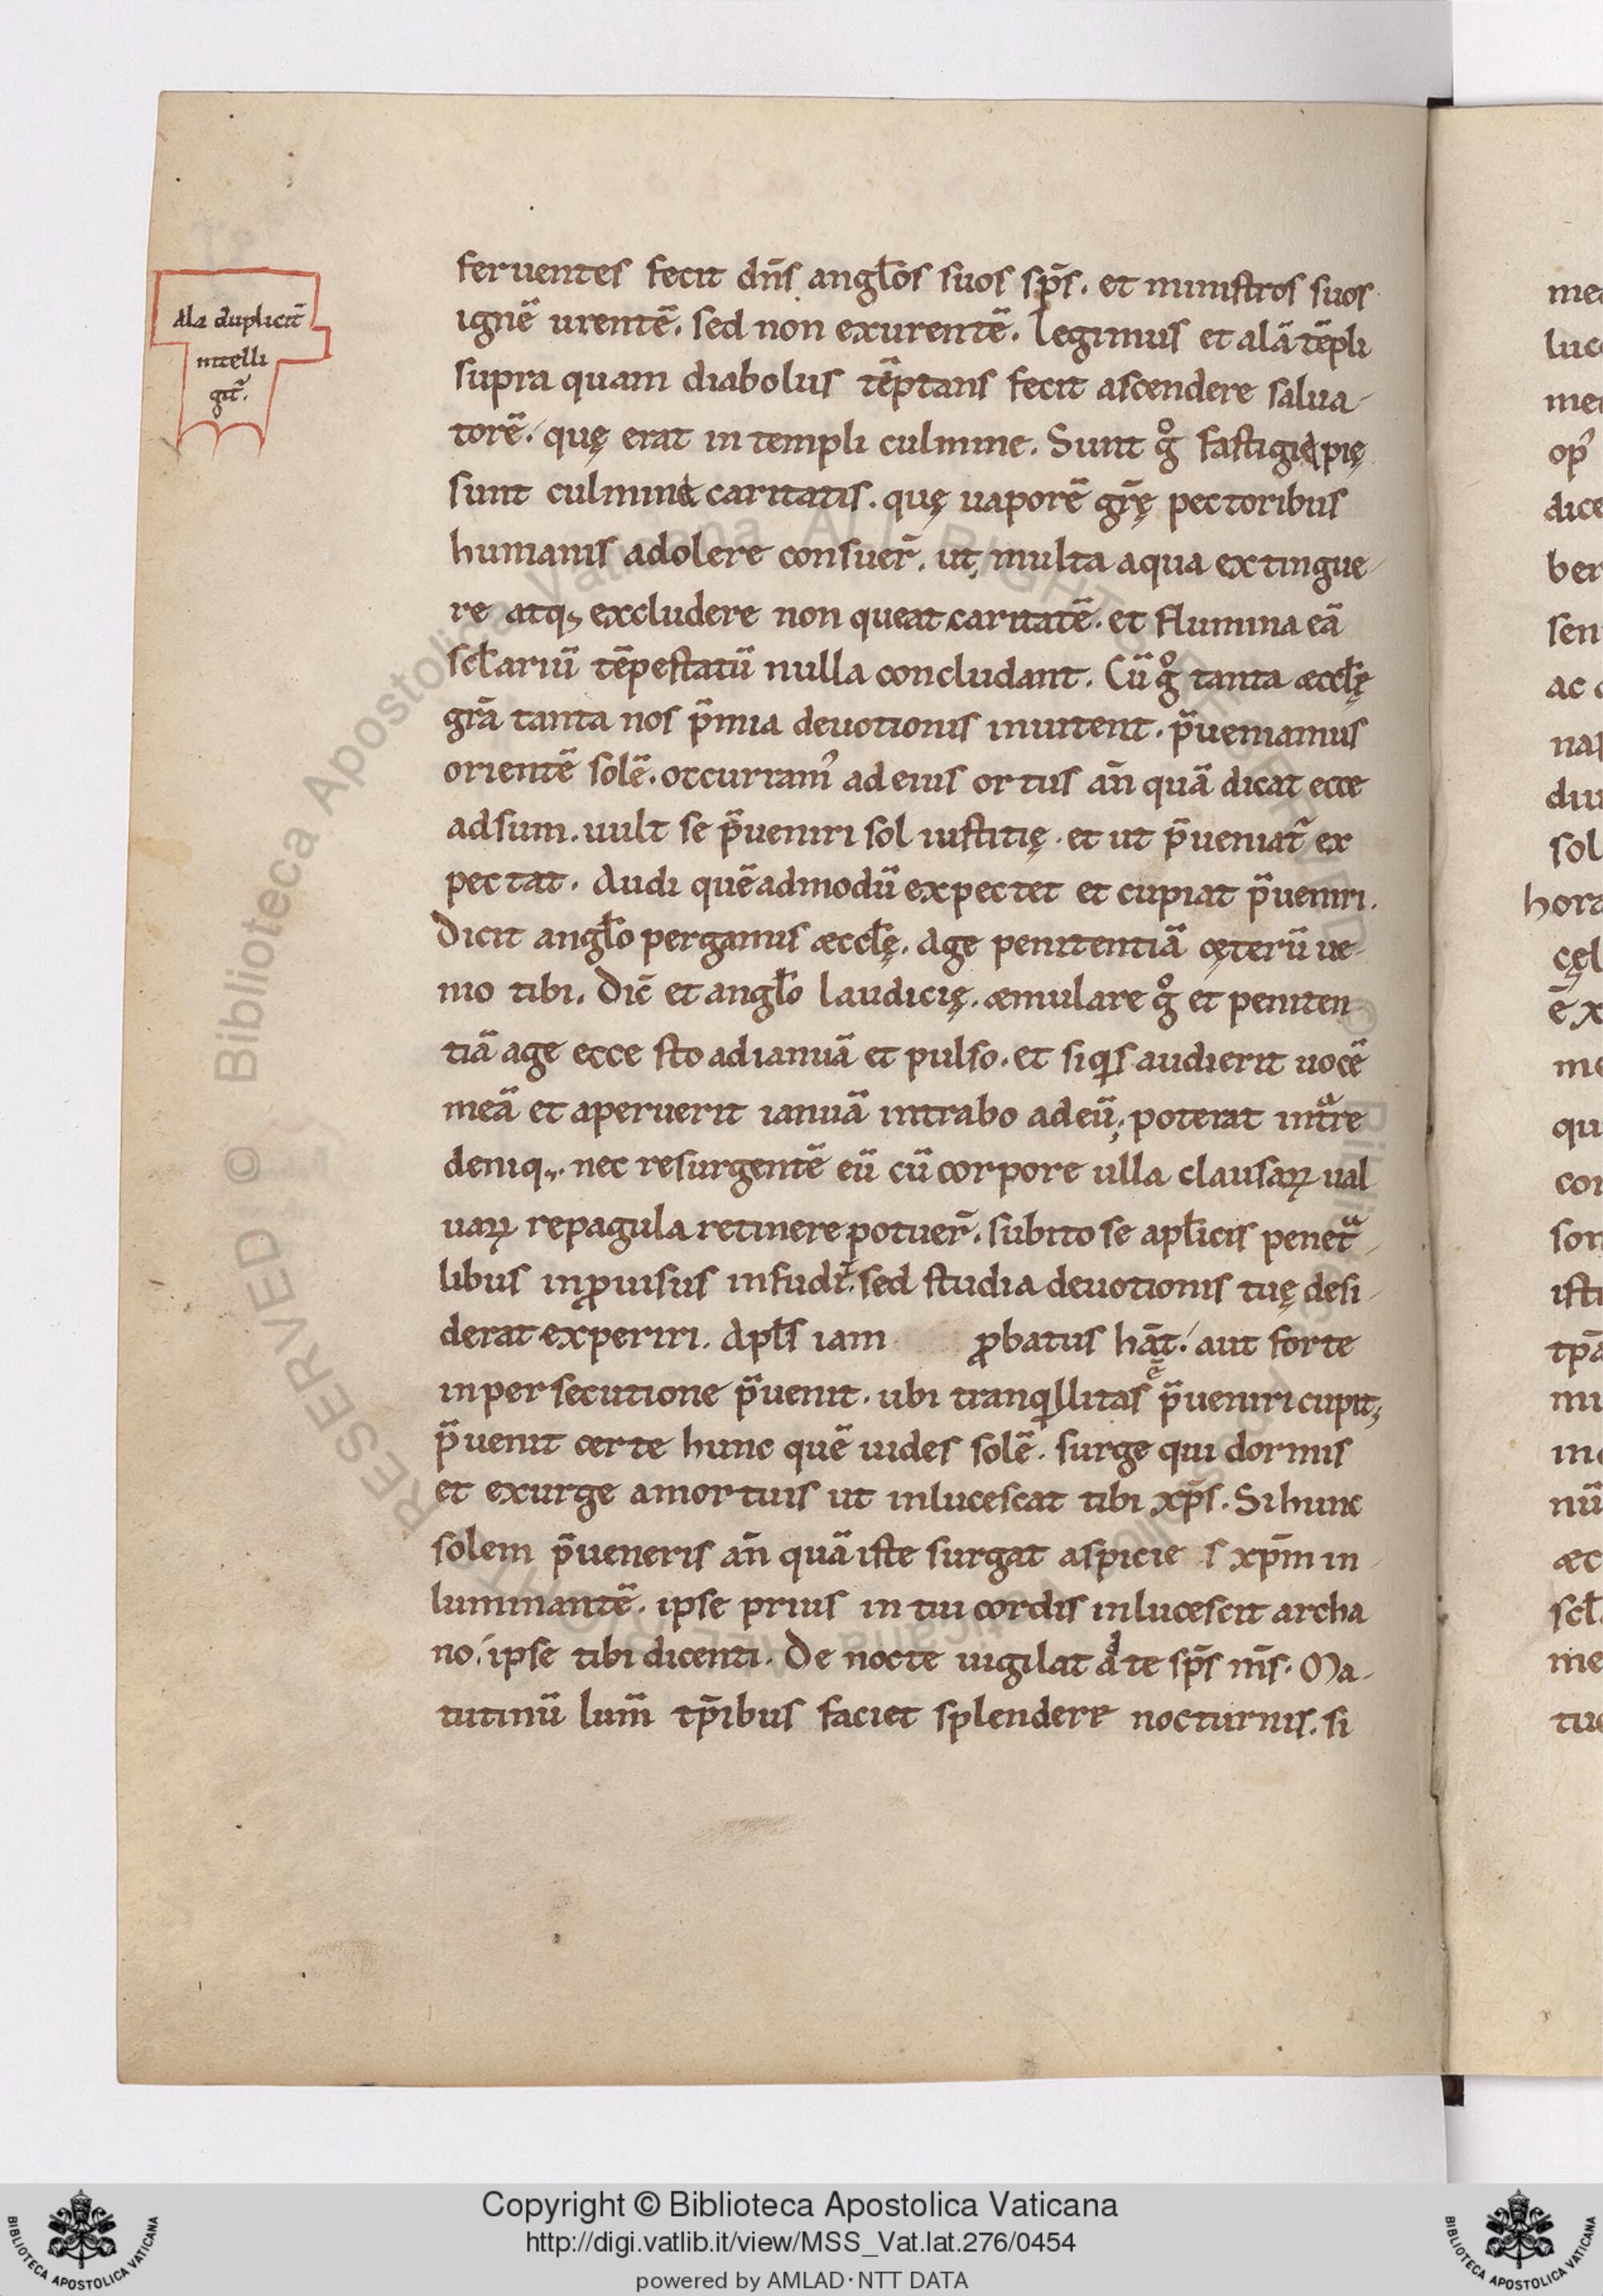 feruentes fecit dn̄s angl̄os suos sp̄s. et ministros suos
ignē urentē. sed non exurentē. Legimus et alā tēpli
supra quam diabolus tēptans fecit ascendere salua-
torē. quę erat in templi culmine. Sunt gͦ fastigię pię
sunt culmine caritatis. quę uaporē gr̄ę pectoribus
humanis adolere consuer̄. ut multa aqua extingue-
re atq; excludere non queat caritatē. et flumina eā
scl̄ariū tēpestatū nulla concludant. Cū gͦ tanta æccl̄ę
grā tanta nos p̄mia deuotionis inuitent. p̄ueniamus
orientē solē. occurram' ad eius ortus an̄ quā dicat ecce
adsum. uult se p̄ueniri sol iustitię. et ut p̄ueniat̄ ex
pectat. Audi quēadmodū expectet et cupiat p̄ueniri.
Dicit angl̄o pergamus æccl̄ę. Age penitentiā cęterū ue-
nio tibi. Dic̄ et angl̄o laudicię. æmulare gͦ et peniten
tiā age ecce sto ad ianuā et pulso. et siqͥs audierit uocē
meā et aperuerit ianuā intrabo ad eū; poterat intͣre
deniq;. nec resurgentē eū cū corpore ulla clausaꝝ ual
uaꝝ repagula retinere potuer̄. subito se apl̄icis penetͣ-
libus inꝓuisus infudit. sed studia deuotionis tuę desi-
derat experiri. Apl̄s iam ꝓbatus hāt. aut forte
in persecutione p̄uenit. ubi tranqͥllitas ē p̄ueniri cupit;
p̄uenit certe hunc quē uides solē. surge qui dormis
et exurge amortuis ut inlucescat tibi xp̄s. Si hunc
solem p̄ueneris an̄ quā iste surgat aspicie s xp̄m in-
luminantē. ipse prius in tui cordis inlucescit archa
no. ipse tibi dicenti. De nocte uigilat ad te sp̄s m̄s. Ma-
tutinū lum̄ tp̄ibus faciet splendere nocturnis. si
Ala duplicit̄
intelli
git̄.
me
luc
me
op'
dice
ber
sen
ac
na
diu
sol
hora
cęl
ē x
me
qu
con
son
isti
tp̄a
mi
in
nū
æc
scl̄
me
tu
© Biblioteca Apostolica Vaticana ALL RIGHTS RESERVED © Biblioteca Apostolica Vaticana ALL RIGHTS RESERVED
Copyright © Biblioteca Apostolica Vaticana
http://digi.vatlib.it/view/MSS_Vat.lat.276/0454
powered by AMLAD·NTT DATA
BIBLIOTECA APOSTOLICA VATICANA
BIBLIOTECA APOSTOLICA VATICANA